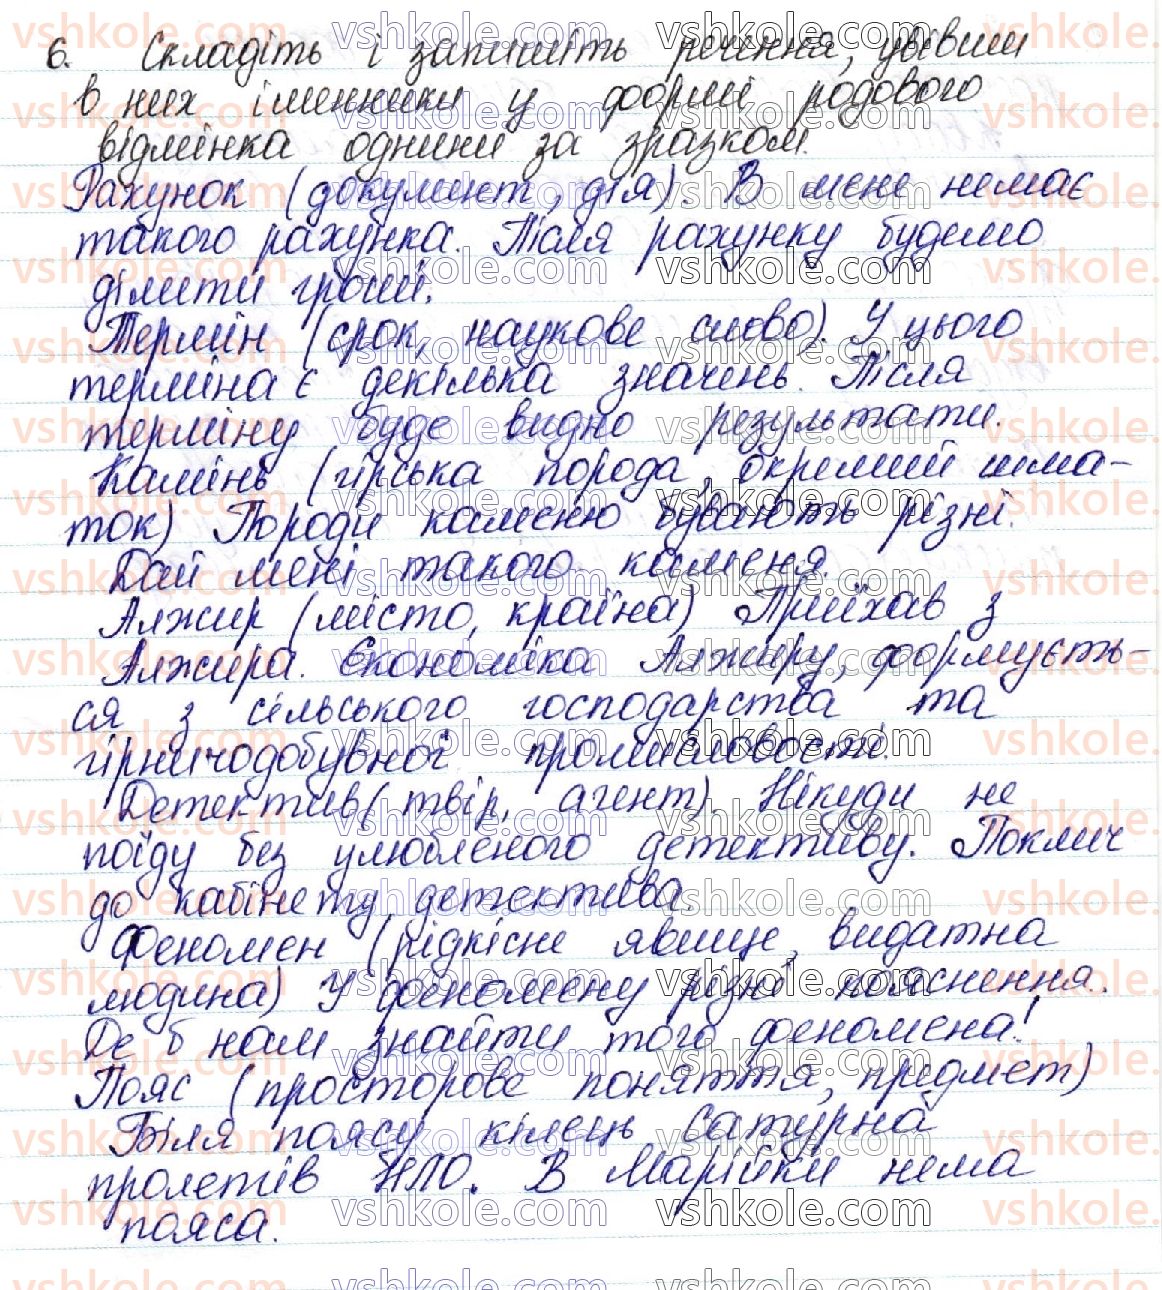 6. Складіть і запишіть речення, увівши
в них іменники у формі родового
відмінка однини за зразком.
Рахунок (документ, дія). В мене немає
такого рахунка. Після рахунку будемо
ділити гроші.
Термін (срок, наукове слово). У цього
терміна є декілька значень. Після
терміну буде видно результати.
Камінь (гірська порода, окремий шма-
ток) Породи каменю бувають різні.
Дай мені такого каменя.
Алжир (місто, країна) Приїхав з
Алжира. Економіка Алжиру, формуєть-
ся з сільського господарства та
гірничодобувної промисловості.
Детектив (твір, агент). Нікуди не
поїду без улюбленого детективу. Поклич
до кабінету детектива.
Феномен (рідкісне явище, видатна
людина) У феномену різні пояснення.
Де б нам знайти того феномена!
Пояс (просторове поняття, предмет)
Біля поясу кілець Сатурна
пролетів НЛО. В Марійки нема
пояса.